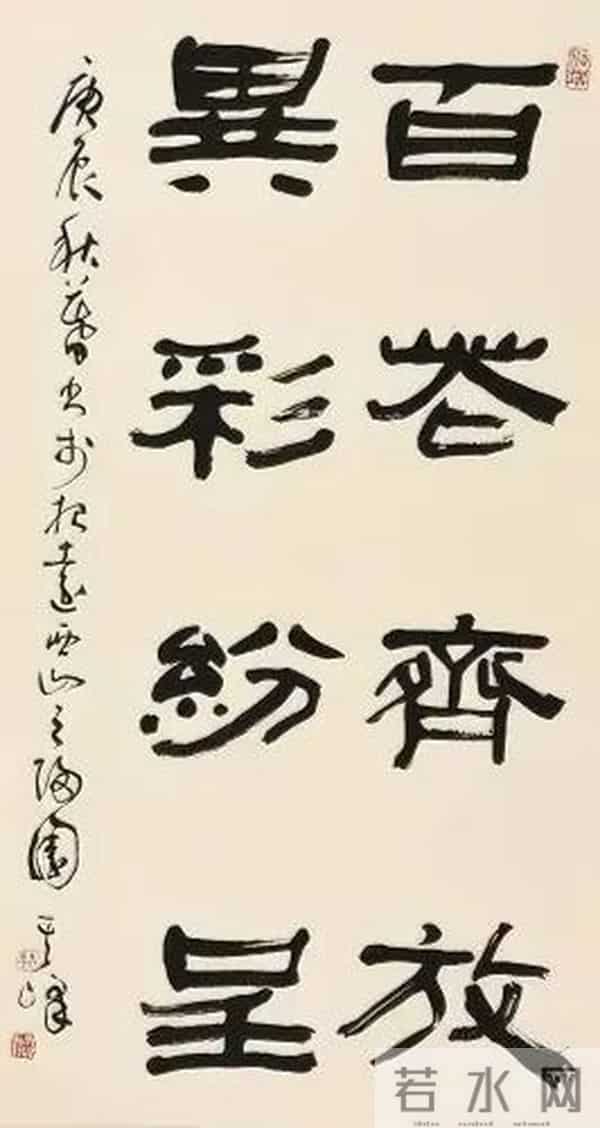 百花齊放
異彩紛呈
庚辰秋暮書於招遠西山之陽園
若水网